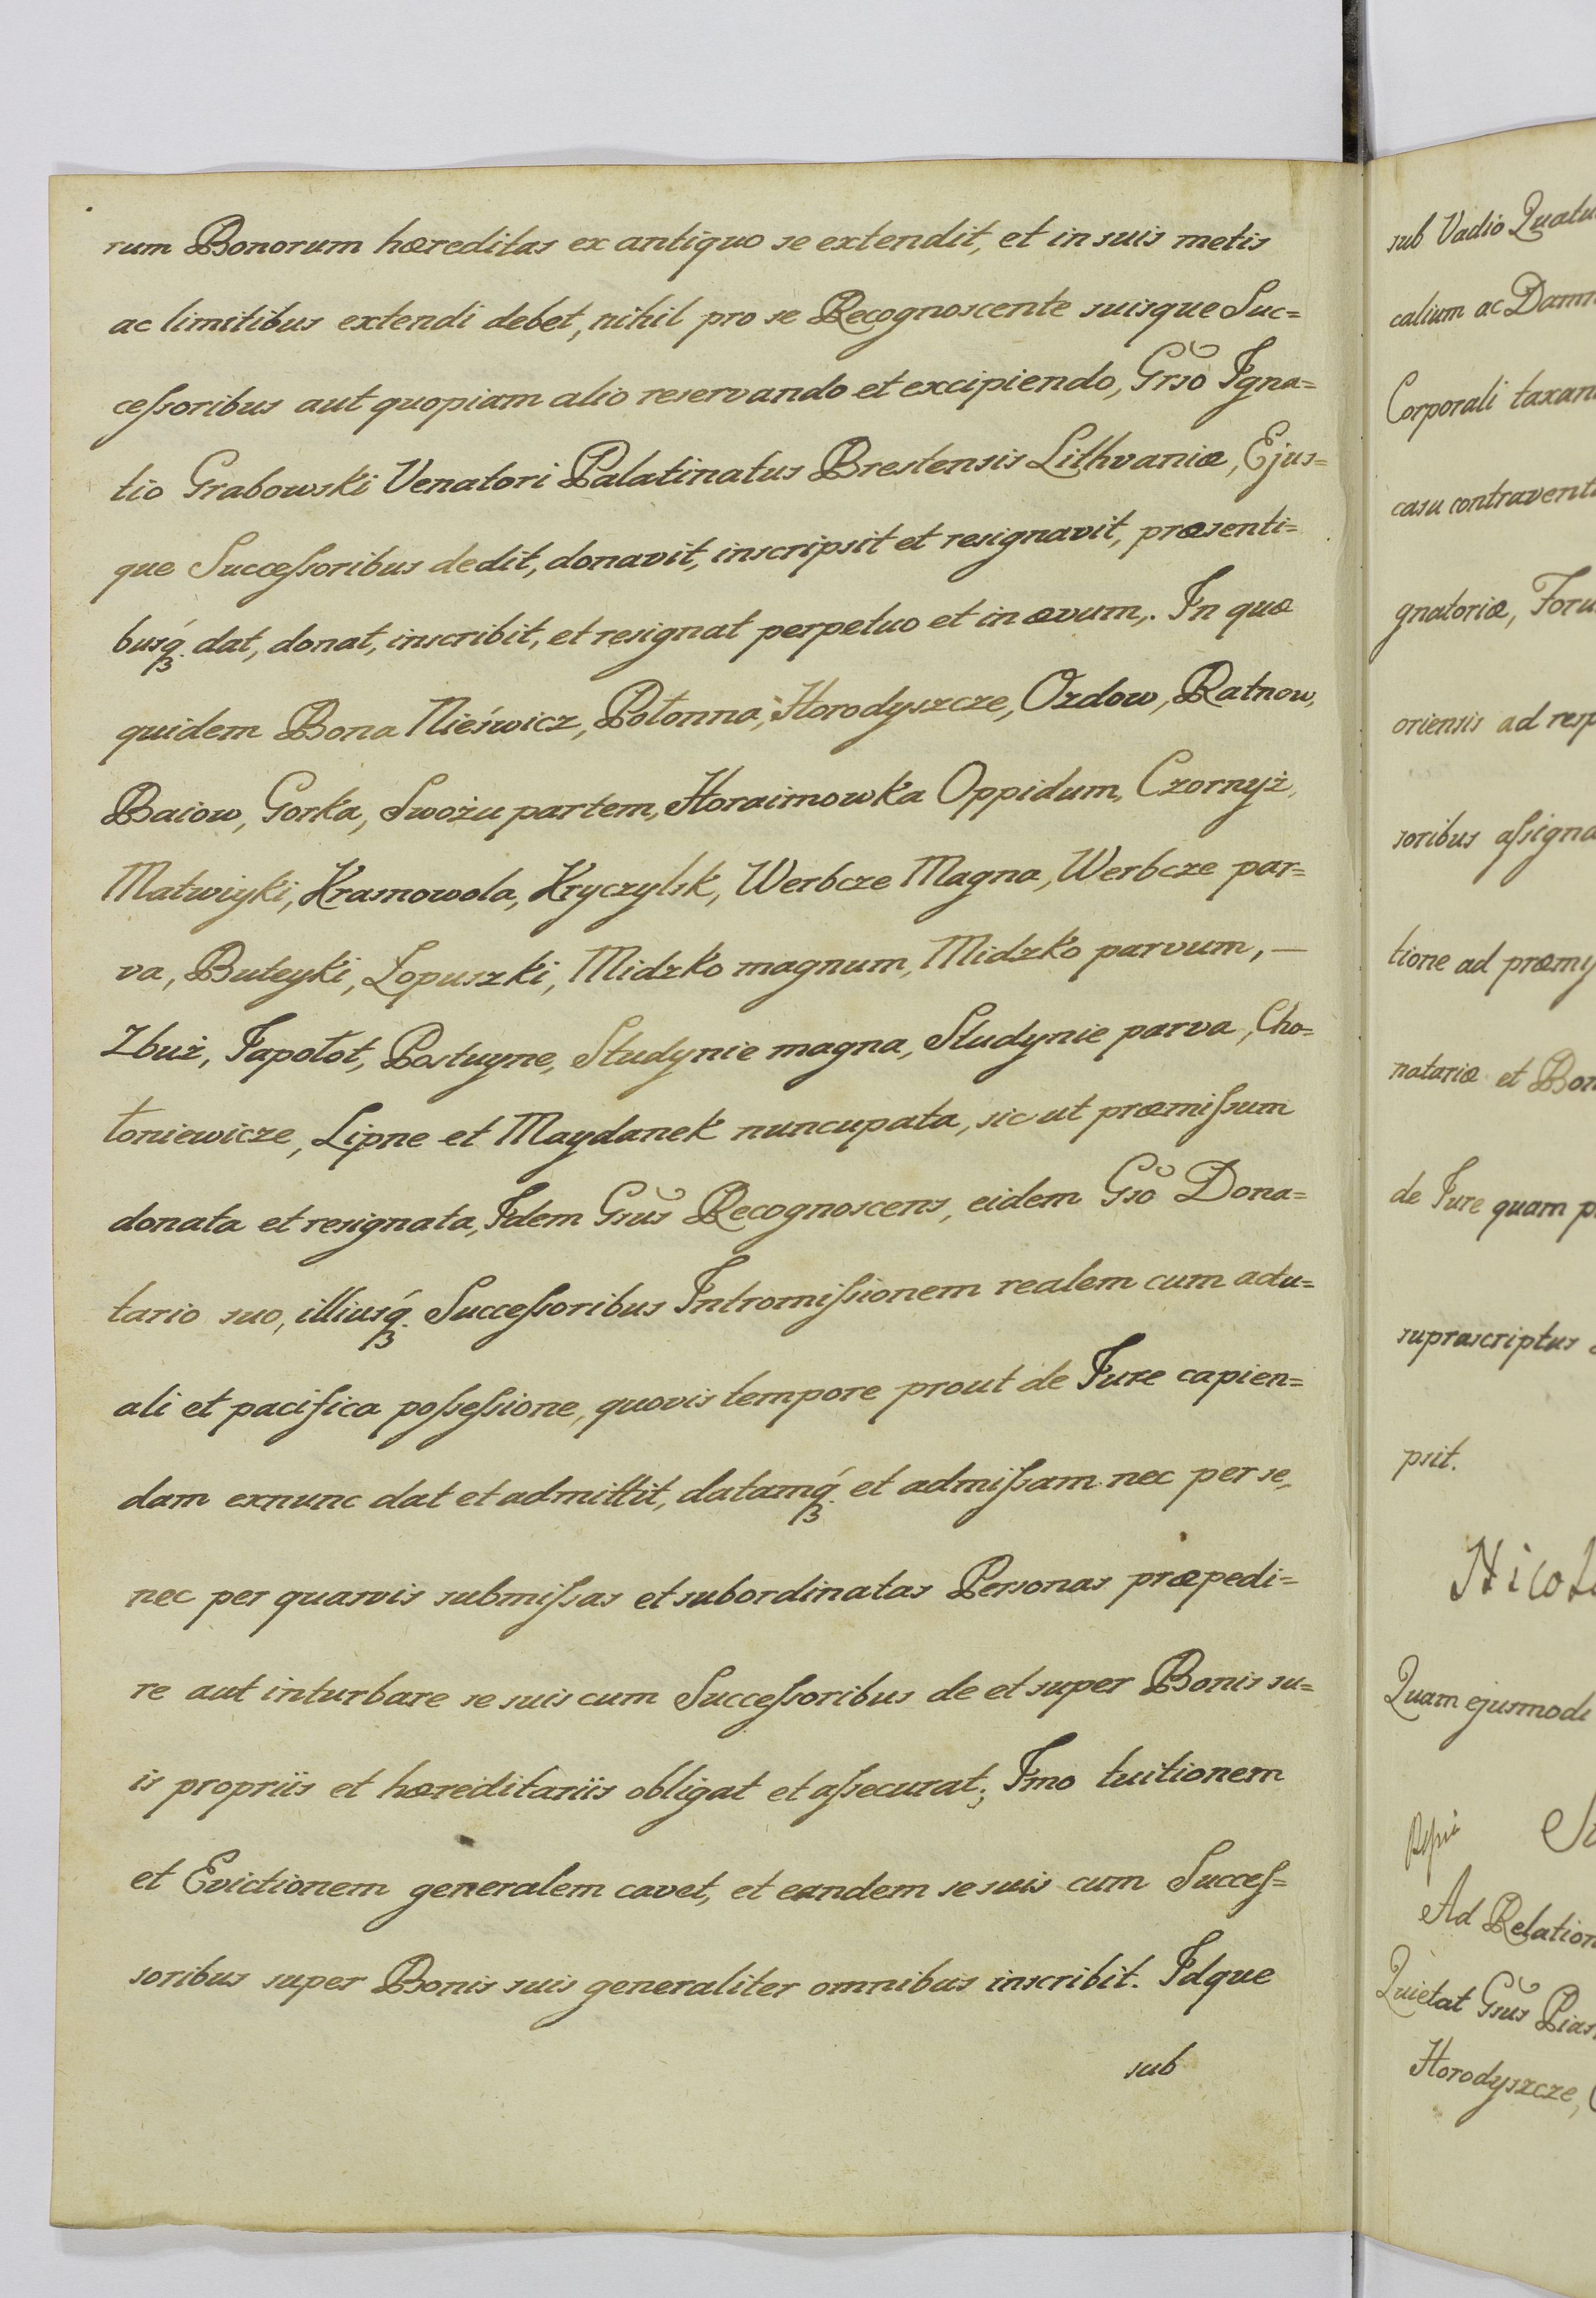 rum Bonorum hæreditas ex antiquo se extendit, et in suis metis
ac limitibus extendi debet, nihil pro se Recognoscente suisque Suc=
ceſsoribus aut quopiam alio reservando et excipiendo, Grsŏ Igna=
tio Grabowski Venatori Palatinatus Brestensis Lithvaniæ, Ejus=
que Succeſsoribus dedit, donavit, inscripsit et resignavit, præsenti=
busq́ꝫ dat, donat, inscribit, et resignat perpetuo et in ævum,. In quæ
quidem Bona Nieświcz, Połonna, Horodyszcze, Ozdow, Ratnow,
Baiow, Gorka, Swożu partem, Horaimowka Oppidum, Czornyż,
Matwiyki, Krasnowola, Kryczylsk, Werbcze Magna, Werbcze par=
va, Buteyki, Łopuszki, Midzko magnum, Midzko parvum, —
Zbuż, Japołot, Postuyne, Studynie magna, Studynie parva, Cho=
łoniewicze, Lipne et Maydanek nuncupata, sic ut præmiſsum
donata et resignata, Idem Gsŭs Recognoscens, eidem Gsŏ Dona=
tario suo, illiusq́ꝫ Succeſsoribus Intromiſsionem realem cum actu=
ali et pacifica poſseſsione, quovis tempore prout de Jure capien=
dam exnunc dat et admittit, datamq́ꝫ et admiſsam nec per se,
nec per quasvis submiſsas et subordinatas Personas præpedi=
re aut inturbare se suis cum Succeſsoribus de et super Bonis su=
is propriis et hæreditariis obligat et aſsecurat; Imo tuitionem
et Evictionem generalem cavet, et eandem se suis cum Succeſ=
soribus super Bonis suis generaliter omnibus inscribit. Idque
sub
sub Vadio Quatu
calium ac Damn
Corporali taxan
casu contraventi
gnatoriæ, Foru
oriensis ad resp
soribus aſsigna
tione ad præmiſ
natariæ et Bon
de Jure quam p
suprascriptus
psit.
Nicol
Quam ejusmodi
Ad Relation
Quietat Gsŭs Pias
Horodyszcze,